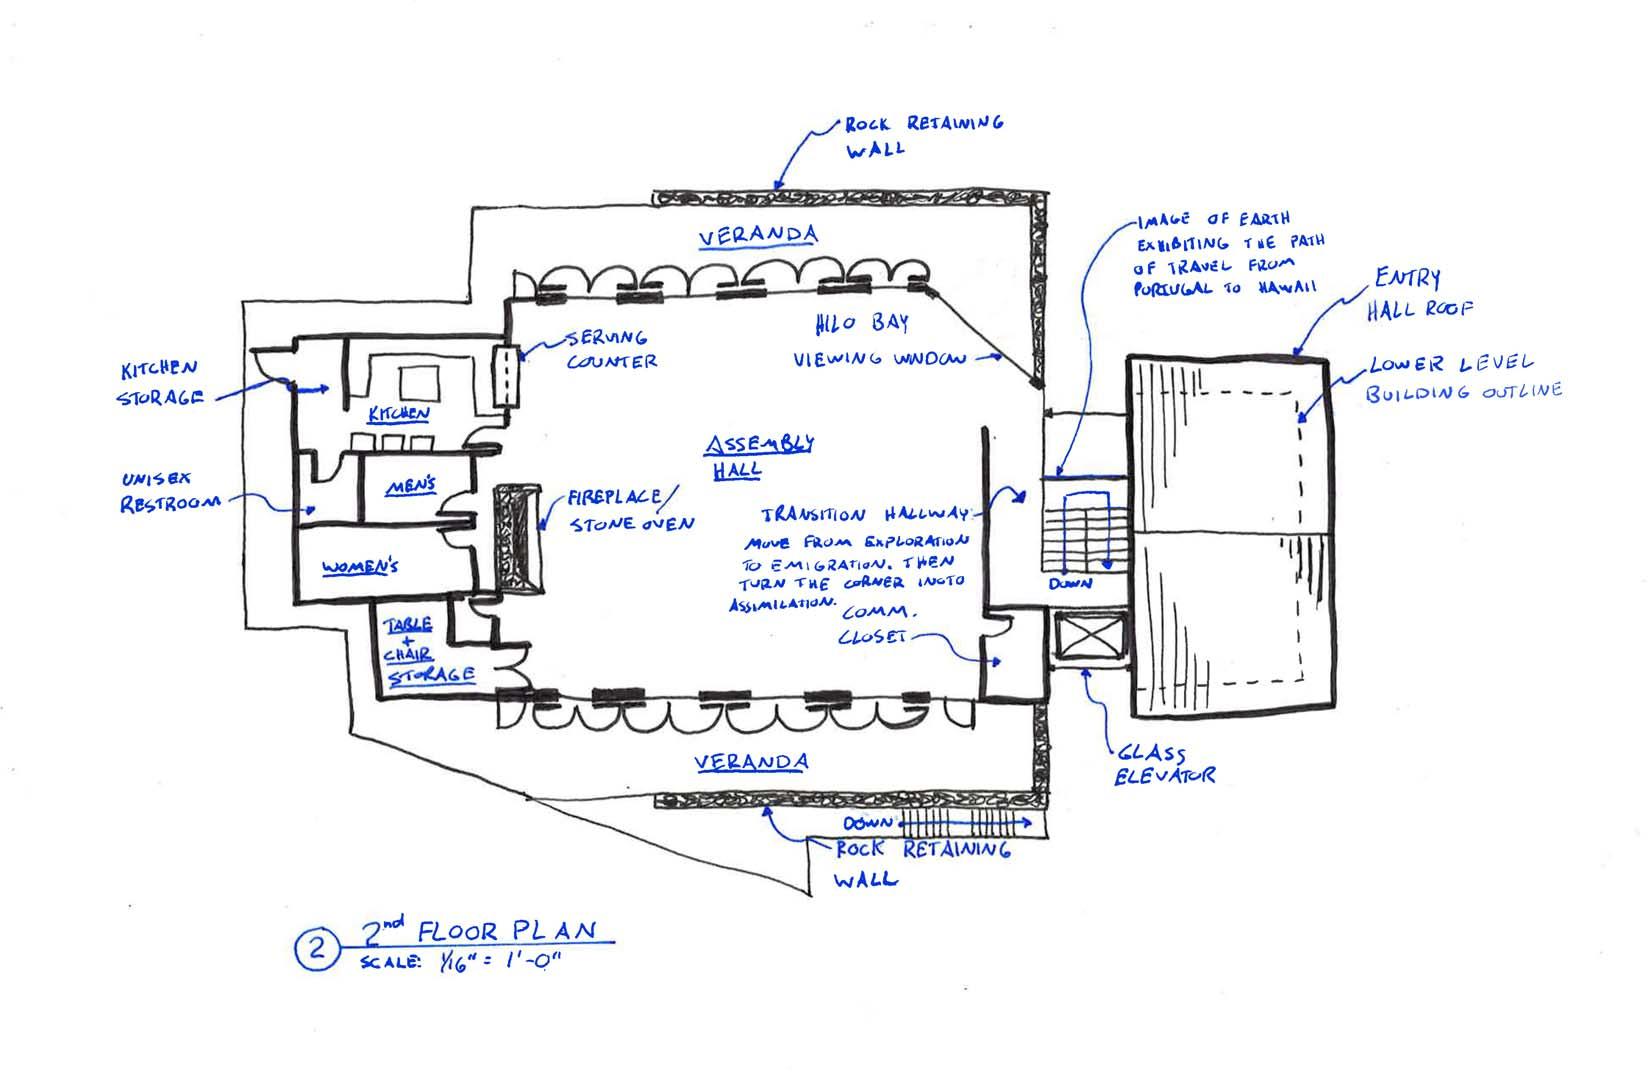 ROCK RETAINING
WALL
VERANDA
IMAGE OF EARTH
EXHIBITING THE PATH
OF TRAVEL FROM
PORTUGAL TO HAWAII
ENTRY
HALL ROOF
HILO BAY
VIEWING WNDOW
SERVING
COUNTER
KITCHEN
STORAGE
KITCHEN
LOWER LEVEL
BUILDING OUTLINE
ASSEMBLY
HALL
UNISEX
RESTROOM
MEN'S
FIREPLACE/
STONE OVEN
TRANSITION HALLWAY:
MOVE FROM EXPLORATION
TO EMIGRATION. THEN
TURN THE CORNER INGTO
ASSIMILATION.
WOMEN'S
DOWN
COMM.
CLOSET
TABLE
+
CHAIR
STORAGE
GLASS
ELEVATOR
VERANDA
DOWN
ROCK RETAINING
WALL
2
2nd FLOOR PLAN
SCALE: 1/16" = 1'-0"